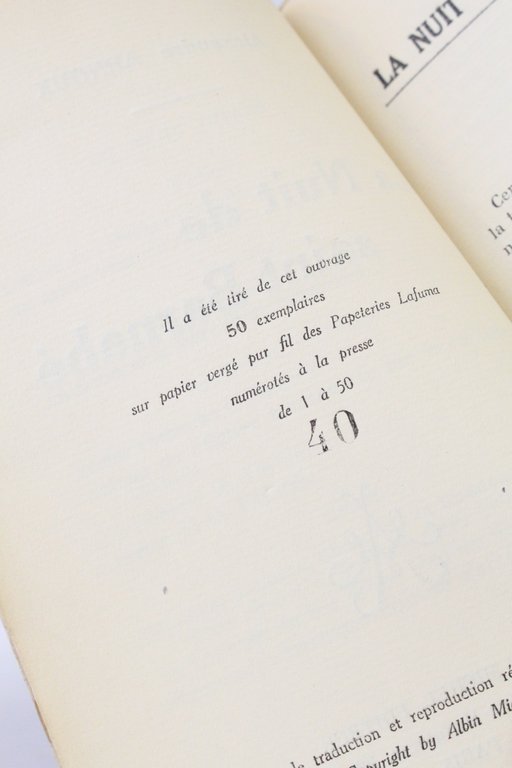 Il a été tiré de cet ouvrage
50 exemplaires
sur papier vergé pur fil des Papeteries Lafuma
numérotés à la presse
de 1 à 50
40
traduction et reproduction
Copyright by Albin
LA NUIT
la